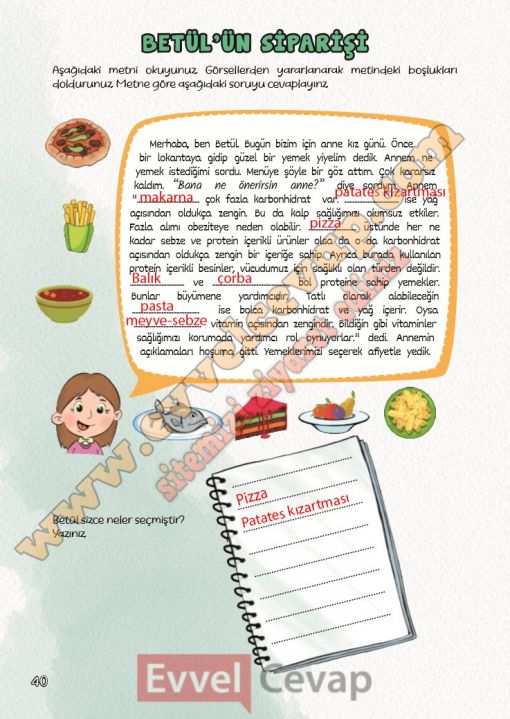 BETÜL'ÜN SİPARİŞİ
Aşağıdaki metni okuyunuz. Görsellerden yararlanarak metindeki boşlukları
doldurunuz. Metne göre aşağıdaki soruyu cevaplayınız.
Merhaba, ben Betül. Bugün bizim için anne kız günü. Önce
bir lokantaya gidip güzel bir yemek yiyelim dedik. Annem, ne
yemek istediğimi sordu. Menüye şöyle bir göz attım. Çok kararsız
kaldım. “Bana ne önerirsin anne?” diye sordum. Annem,
"makarna çok fazla karbonhidrat var. patates kızartması ise yağ
açısından oldukça zengin. Bu da kalp sağlığımızı olumsuz etkiler.
Fazla alımı obeziteye neden olabilir. pizza üstünde her ne
kadar sebze ve protein içerikli ürünler olsa da o da karbonhidrat
açısından oldukça zengin bir içeriğe sahip. Ayrıca burada kullanılan
protein içerikli besinler, vücudumuz için sağlıklı olan türden değildir.
Balık ve çorba bol proteine sahip yemekler.
Bunlar büyümene yardımcıdır. Tatlı olarak alabileceğin
pasta ise bolca karbonhidrat ve yağ içerir. Oysa
meyve-sebze vitamin açısından zengindir. Bildiğin gibi vitaminler
sağlığımızı korumada yardımcı rol oynuyorlar." dedi. Annemin
açıklamaları hoşuma gitti. Yemeklerimizi seçerek afiyetle yedik.
Betül sizce neler seçmiştir?
Yazınız.
Pizza
Patates kızartması
www.evvelcevap.com
sitemizi ziyaret ediniz
40
Evvel Cevap